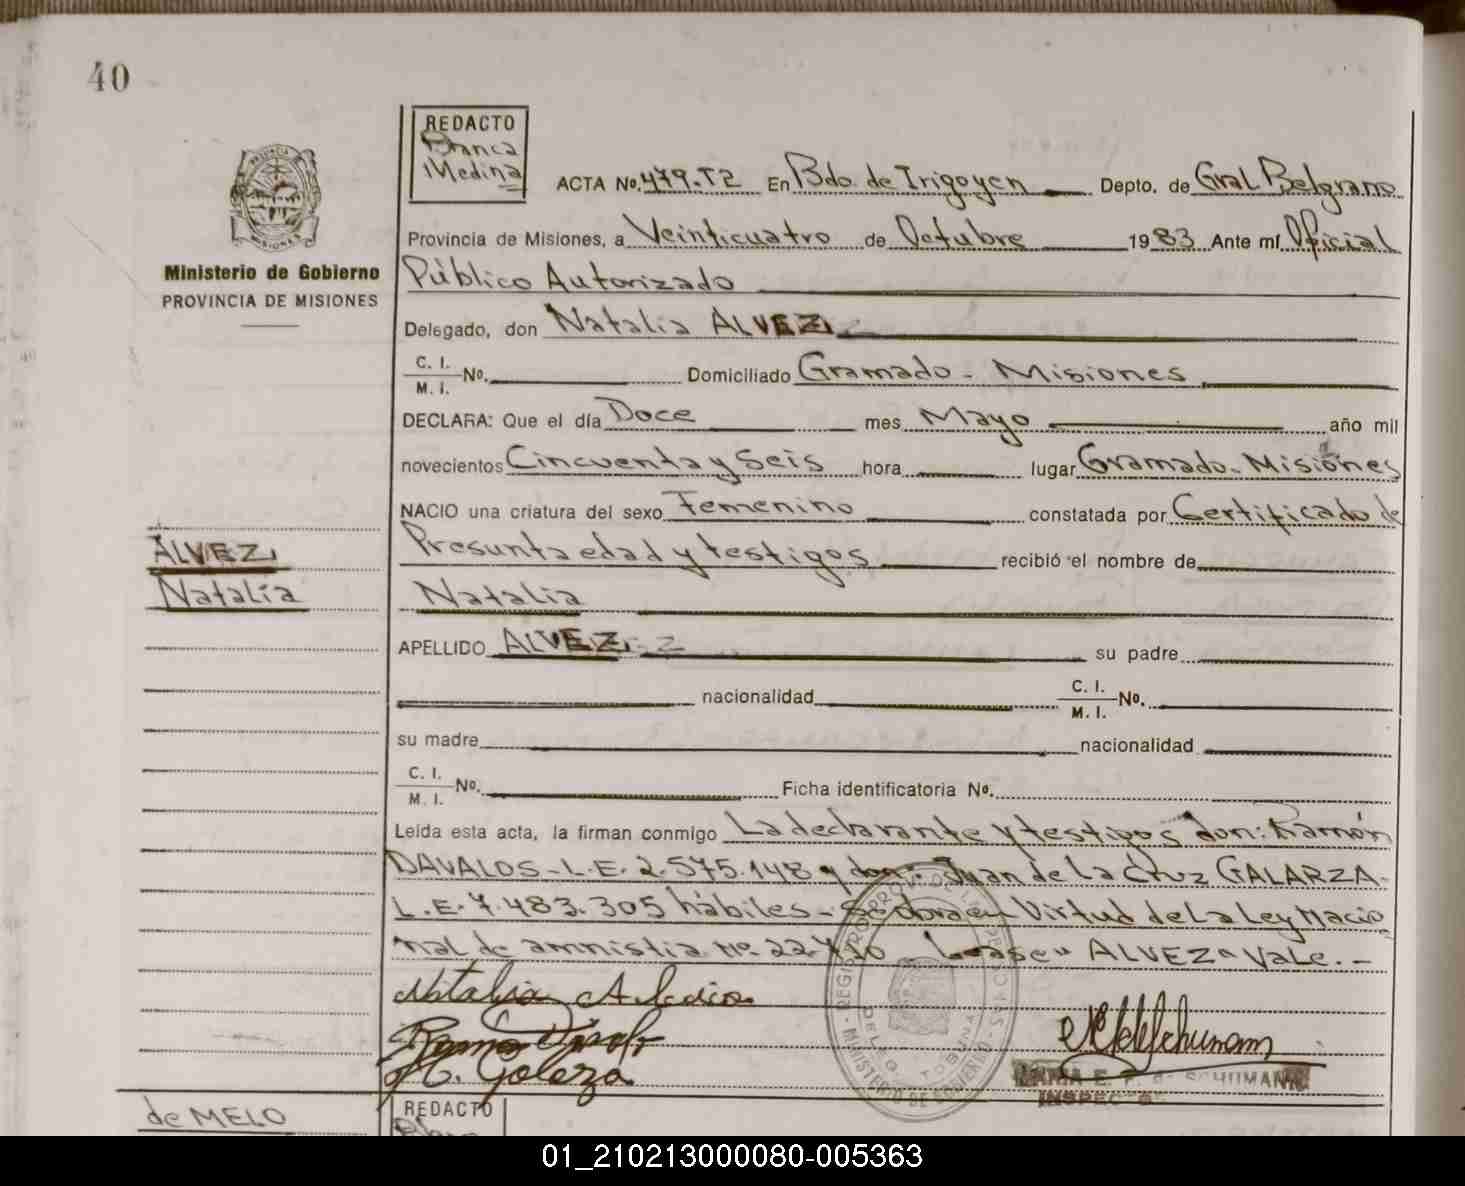 40
REDACTO
Branca
Medina
ACTA No. 479.T2 En Bdo. de Irigoyen Depto. de Gral Belgrano
Provincia de Misiones, a Veinticuatro de Octubre 1983 Ante mí Oficial
Ministerio de Gobierno
PROVINCIA DE MISIONES
Público Autorizado
Delegado, don Natalia ALVEZ
C. I.
M. I. No. Domiciliado Gramado - Misiones
DECLARA: Que el día Doce mes Mayo año mil
novecientos Cincuenta y Seis hora lugar Gramado - Misiones
NACIO una criatura del sexo Femenino constatada por Certificado de
ALVEZ
Natalia
Presunta edad y testigos recibió el nombre de
Natalia
APELLIDO ALVEZ su padre
nacionalidad C. I.
M. I. No.
su madre nacionalidad
C. I.
M. I. No. Ficha identificatoria No.
Leída esta acta, la firman conmigo La declarante y testigos don: Ramón
DAVALOS - L.E. 2.575.148 y don: Juan de la Cruz GALARZA -
L.E. 7.483.305 hábiles - en Virtud de La Ley Nacio
nal de amnistia No. 22. Lease " ALVEZ " Vale. -
Natalia
MINISTERIO DE GOBIERNO
SCHUMANN
de MELO
REDACTO
01_210213000080-005363